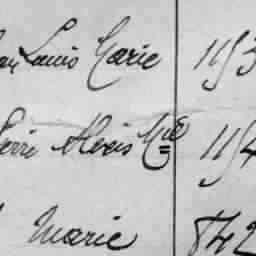 Louis Marie 1153
Alexis Mie 1154
Marie 842